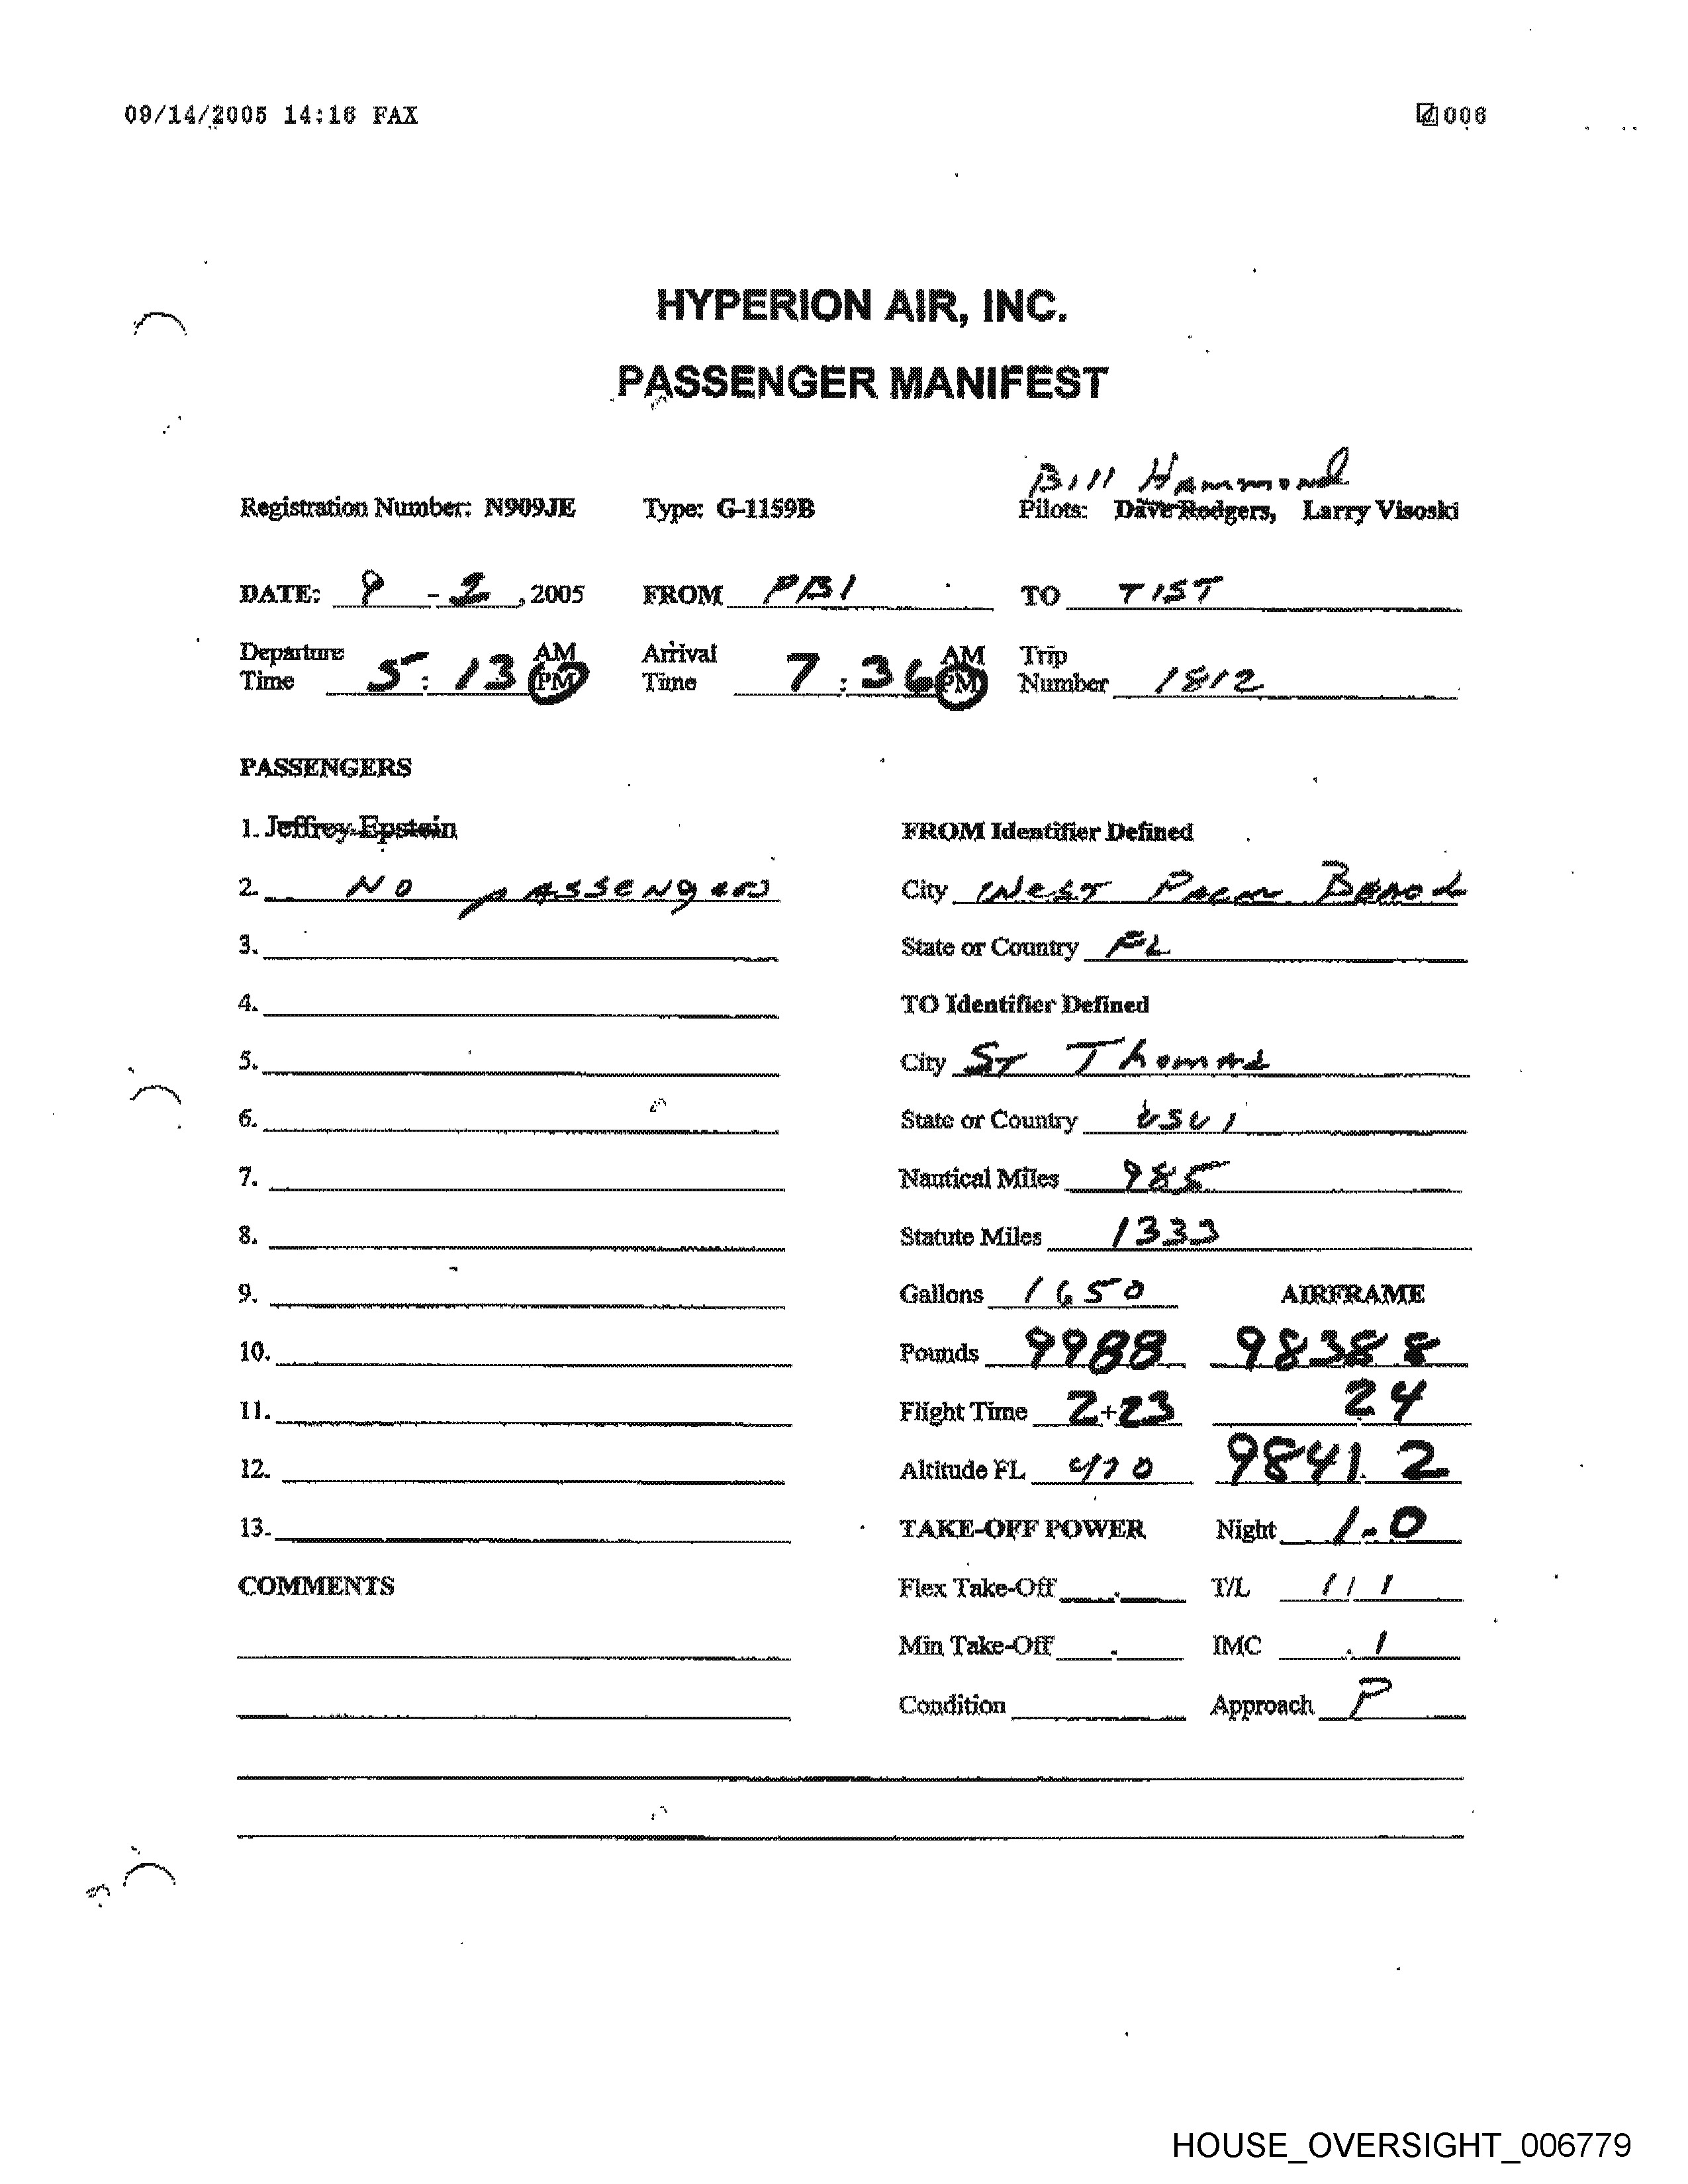 09/14/2005 14:16 FAX 006
HYPERION AIR, INC.
PASSENGER MANIFEST
Bill Hammond
Registration Number: N909JE Type: G-1159B Pilots: Dave Rodgers, Larry Visoski
DATE: 9 - 2 , 2005 FROM PBI TO TIST
Departure Time 5:13 AM PM Arrival Time 7:36 AM PM Trip Number 1812
PASSENGERS
1. Jeffrey Epstein FROM Identifier Defined
2. NO PASSENGERS City West Palm Beach
3. State or Country FL
4. TO Identifier Defined
5. City St Thomas
6. State or Country USVI
7. Nautical Miles 985
8. Statute Miles 1333
9. Gallons 1650 AIRFRAME
10. Pounds 9988 9838 8
11. Flight Time 2+23 2 4
12. Altitude FL 410 9841. 2
13. TAKE-OFF POWER Night 1.0
COMMENTS Flex Take-Off . T/L 1/1
Min Take-Off . IMC .1
Condition Approach P
HOUSE_OVERSIGHT_006779